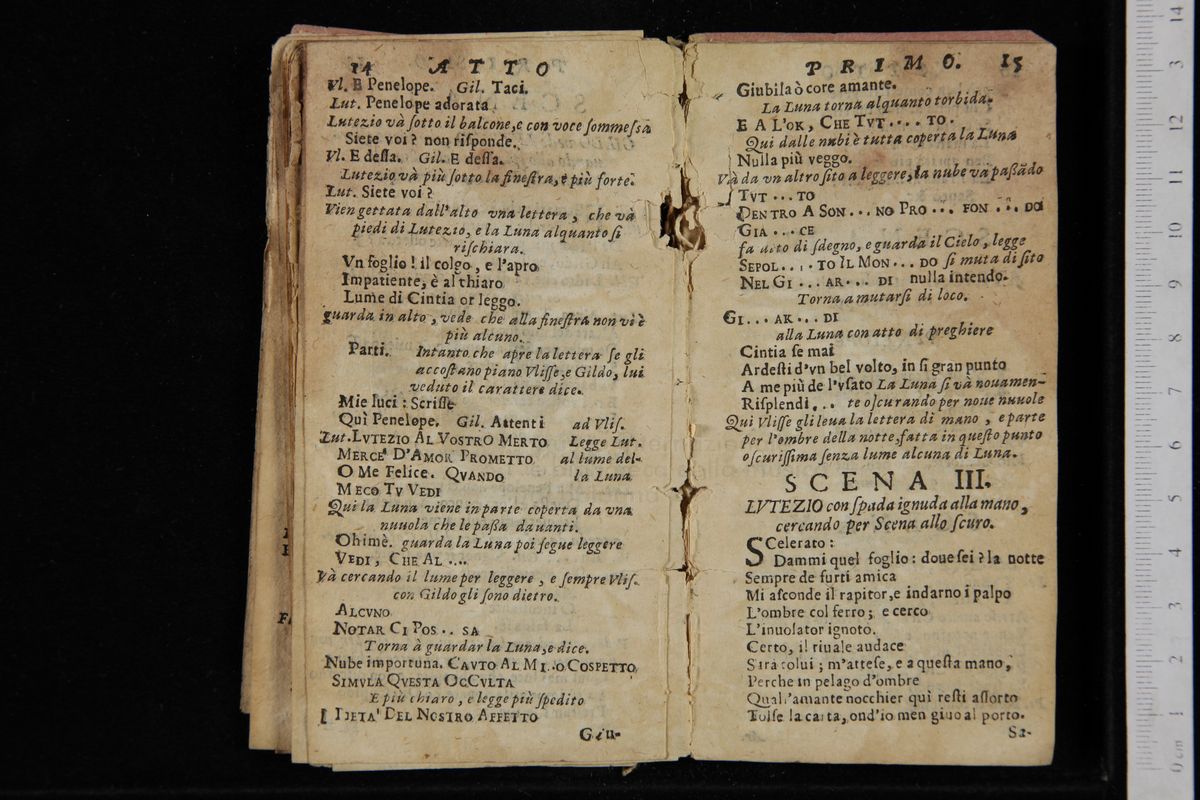 14 ATTO
Vl. E Penelope. Gil. Taci.
Lut. Penelope adorata
Lutezio và sotto il balcone, e con voce sommessa
Siete voi? non risponde.
Vl. E dessa. Gil. E dessa.
Lutezio và più sotto la finestra, è più forte.
Lut. Siete voi?
Vien gettata dall'alto vna lettera, che và
piedi di Lutezio, e la Luna alquanto si
rischiara.
Vn foglio! il colgo, e l'apro
Impatiente, è al chiaro
Lume di Cintia or leggo.
guarda in alto, vede che alla finestra non vi è
più alcuno.
Parti. Intanto che apre la lettera se gli
accostano piano Vlisse, e Gildo, lui
veduto il carattere dice.
Mie luci: Scrisse
Quì Penelope. Gil. Attenti ad Vlis.
Lut. LVTEZIO AL VOSTRO MERTO Legge Lut.
MERCE' D'AMOR PROMETTO al lume del-
O ME FELICE. QVANDO la Luna
MECO TV VEDI
Qui la Luna viene in parte coperta da vna
nuuola che le passa dauanti.
Ohimè. guarda la Luna poi segue leggere
VEDI, CHE AL ....
Và cercando il lume per leggere, e sempre Vlis.
con Gildo gli sono dietro.
ALCVNO
NOTAR CI POS .. SA
Torna à guardar la Luna, e dice.
Nube importuna. CAVTO AL MI..O COSPETTO
SIMVLA QVESTA OCCVLTA
E più chiaro, e legge più spedito
PIETA' DEL NOSTRO AFFETTO
Giu-
PRIMO. 15
Giubila ò core amante.
La Luna torna alquanto torbida.
E A L'OK, CHE TVT .... TO.
Qui dalle nubi è tutta coperta la Luna
Nulla più veggo.
Và da vn altro sito a leggere, la nube va passãdo
TVT ... TO
DENTRO A SON ... NO PRO ... FON ... DO
GIA ... CE
fa atto di sdegno, e guarda il Cielo, legge
SEPOL .... TO IL MON ... DO si muta di sito
NEL GI ... AR ... DI nulla intendo.
Torna a mutarsi di loco.
GI ... AK ... DI
alla Luna con atto di preghiere
Cintia se mai
Ardesti d'vn bel volto, in si gran punto
A me più de l'vsato La Luna si và nouamen-
Risplendi... te oscurando per noue nuuole
Qui Vlisse gli leua la lettera di mano, e parte
per l'ombre della notte, fatta in questo punto
oscurissima senza lume alcuna di Luna.
SCENA III.
LVTEZIO con spada ignuda alla mano,
cercando per Scena allo scuro.
SCelerato:
Dammi quel foglio: doue sei? la notte
Sempre de furti amica
Mi asconde il rapitor, e indarno i palpo
L'ombre col ferro; e cerco
L'inuolator ignoto.
Certo, il riuale audace
Sarà colui; m'attese, e a questa mano,
Perche in pelago d'ombre
Qual'amante nocchier qui resti assorto
Tolse la carta, ond'io men giuo al porto.
Sa-